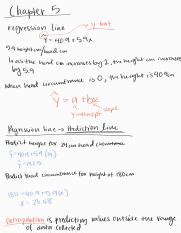 Chapter 5
regression line
y-hat
ŷ = 40.9 + 5.9x
5.9 height cm / head cm
as the head cm increases by 1, the height cm increases
by 5.9
when head circumference is 0, the height is 40.9 cm
ŷ = a + bx
y-intercept
slope
Regression line → Prediction Line
Predict height for 24 cm head circumference
Predict head circumference for height of 180 cm
180 = 40.9 + 5.9(x)
x = 23.58
Extrapolation is predicting values outside the range
of data collected